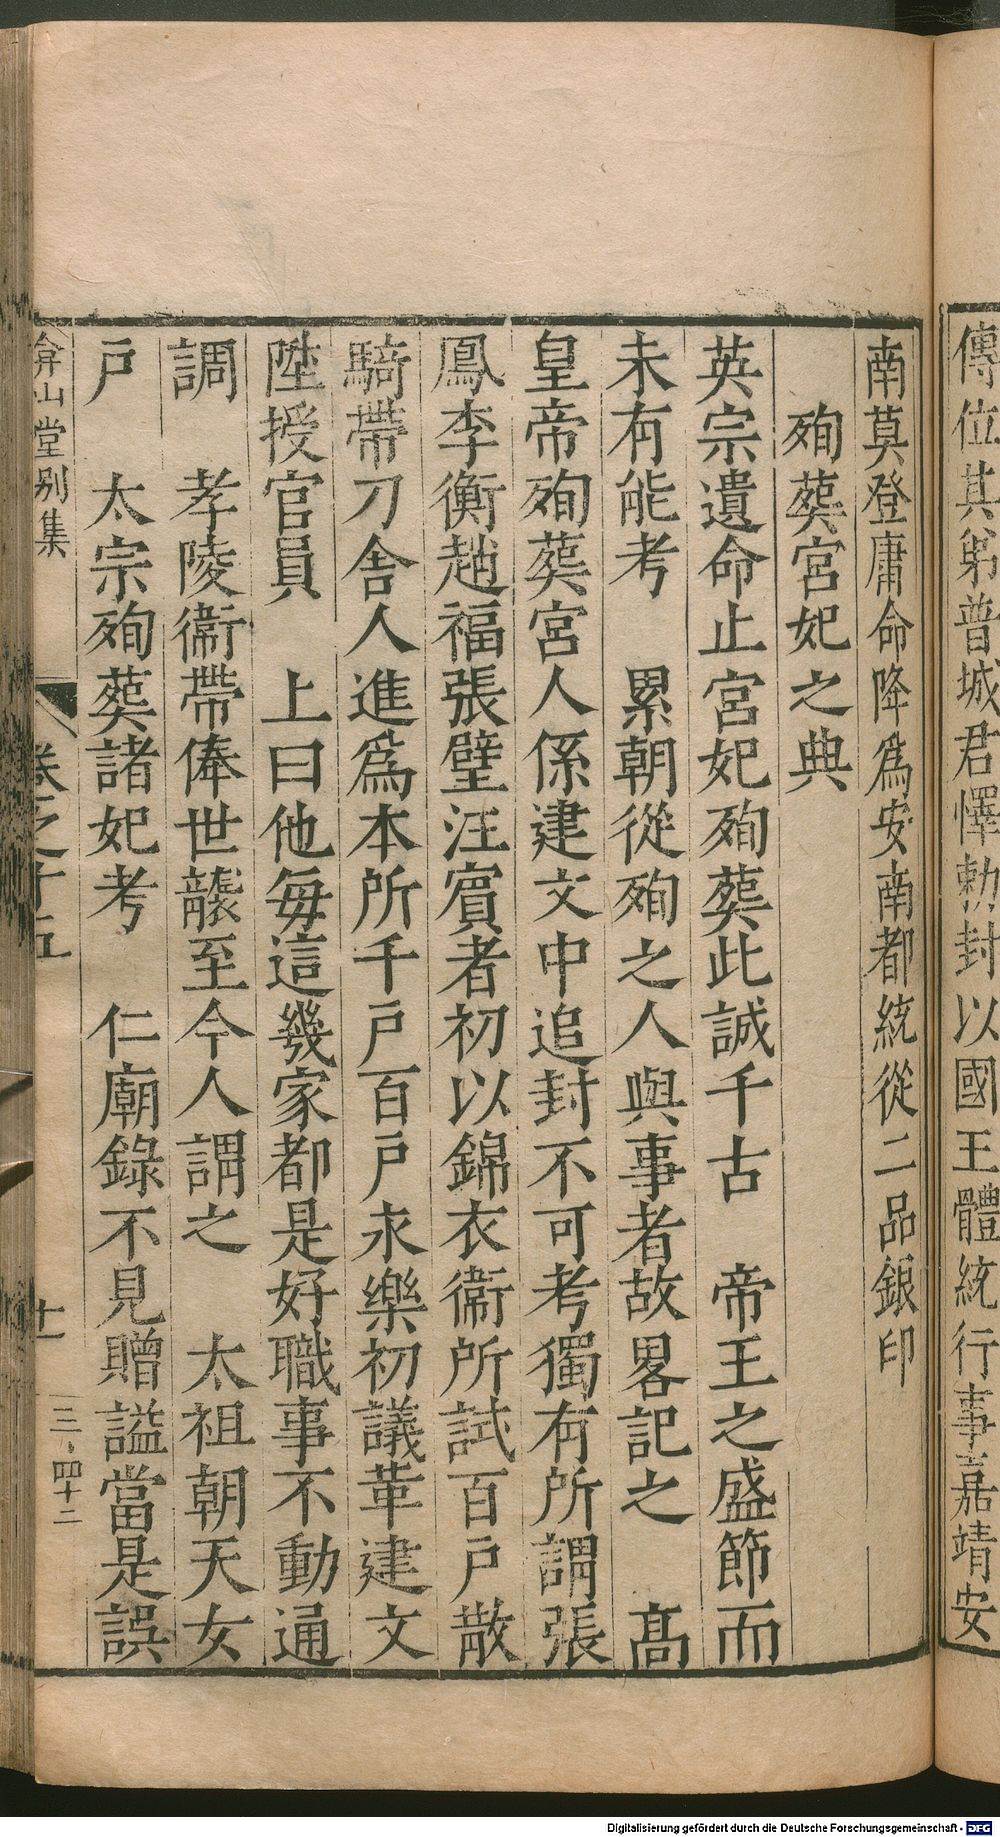 傳位其弟普城君懌勅封以國王體統行事嘉靖安
南莫登庸命降爲安南都統從二品銀印
殉葬宮妃之典
英宗遺命止宮妃殉葬此誠千古　帝王之盛節而
未有能考　累朝從殉之人與事者故畧記之　高
皇帝殉葬宮人係建文中追封不可考獨有所謂張
鳳李衡趙福張璧汪賓者初以錦衣衞所試百戶散
騎帶刀舍人進爲本所千戶百戶永樂初議革建文
陞授官員　上曰他每這幾家都是好職事不動通
調　孝陵衞帶俸世襲至今人謂之　太祖朝天女
戶　太宗殉葬諸妃考　仁廟錄不見贈謚當是誤
弇山堂別集　卷之十五　十一　三·四十二
Digitalisierung gefördert durch die Deutsche Forschungsgemeinschaft - DFG